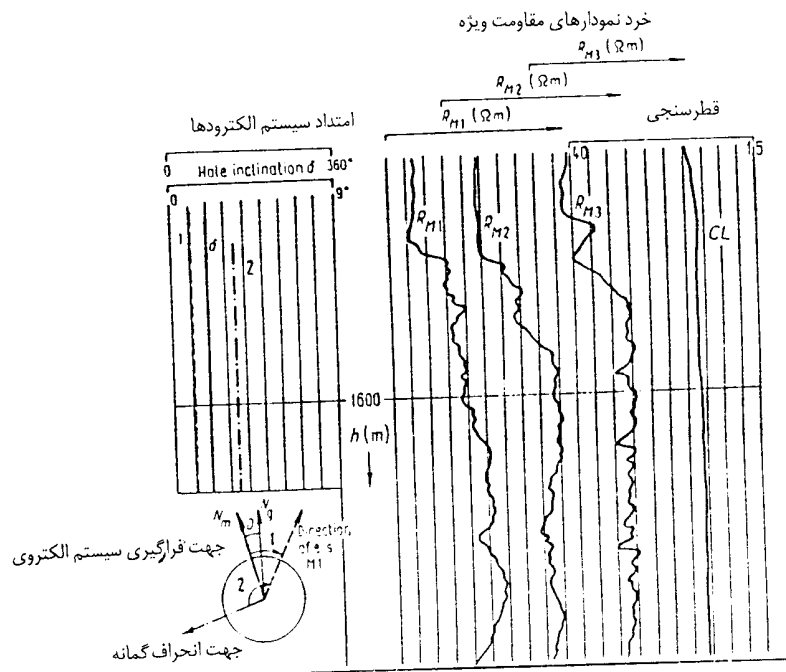 خرد نمودارهای مقاومت ویژه
R_M3 (Ωm)
R_M2 (Ωm)
R_M1 (Ωm)
امتداد سیستم الکترودها
قطرسنجی
0 360°
Hole inclination δ
0 9°
40 15
1 δ 2
R_M1 R_M2 R_M3 CL
1600
h (m)
N_m D N_g
1
Direction
of e. s
M1
2
جهت فراگیری سیستم الکتروی
جهت انحراف گمانه